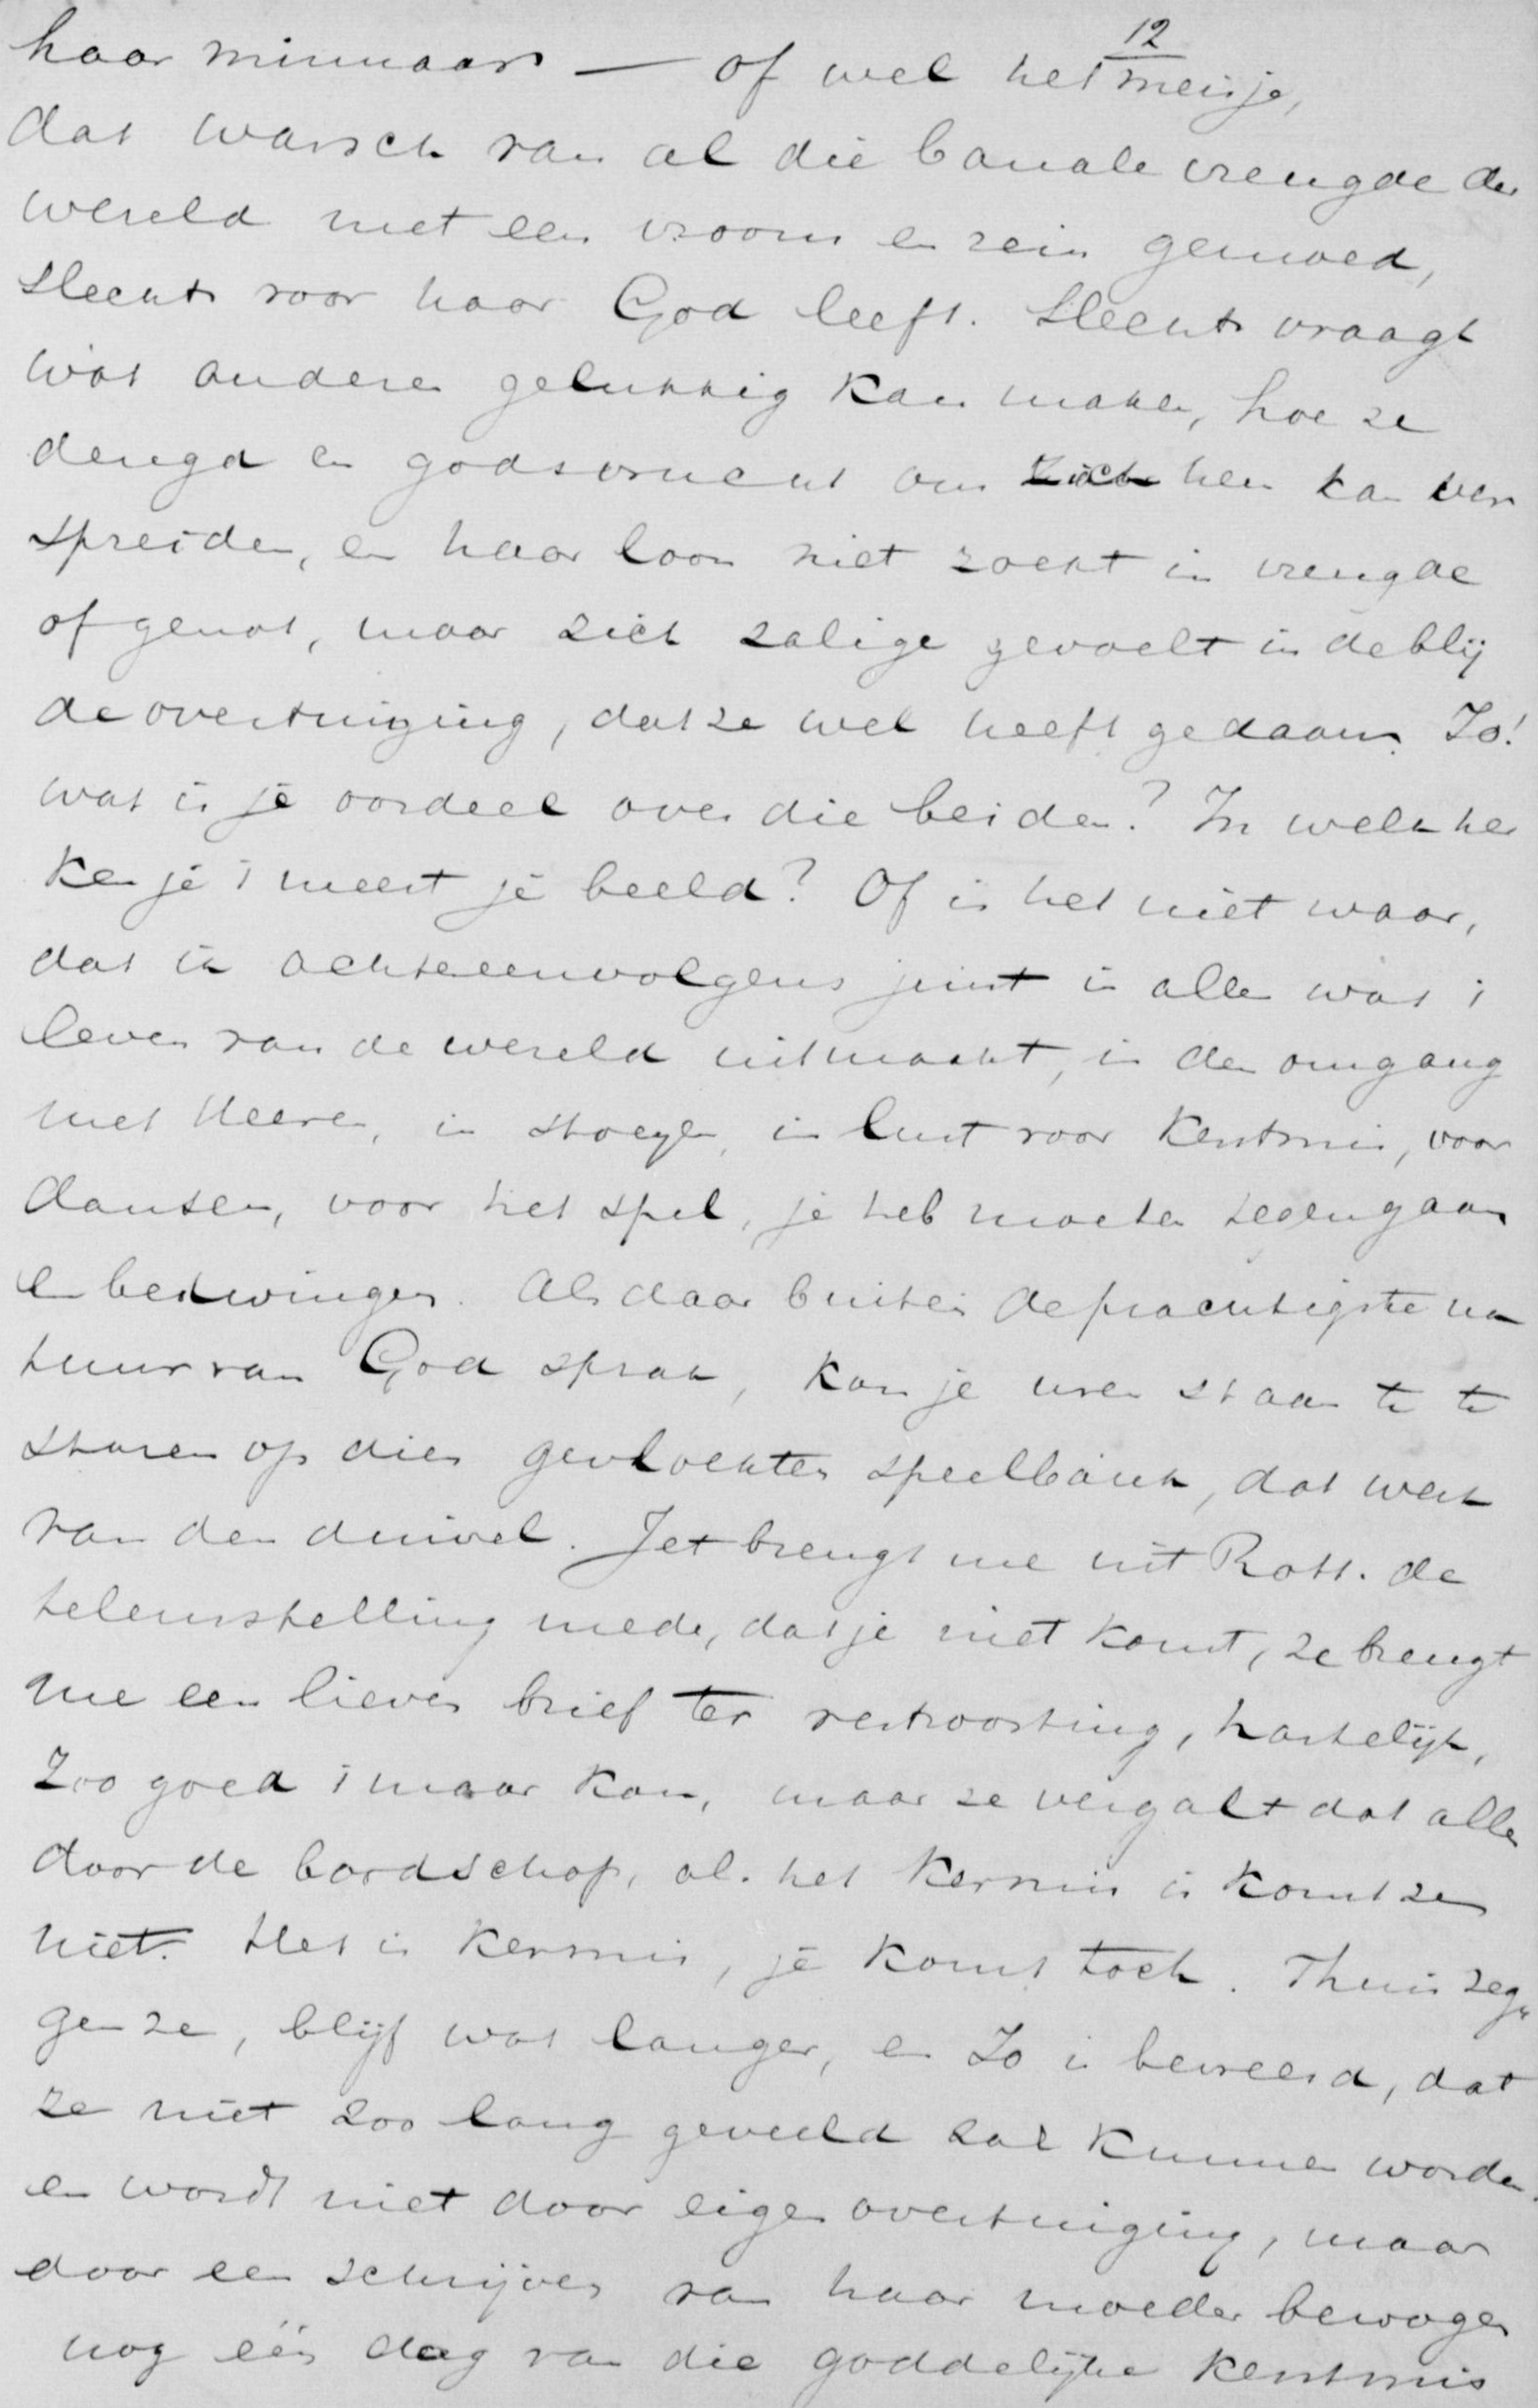 12
haar minnaar — of wel het meisje,
dat warsch van al die banale vreugde der
wereld met een vroom en rein gemoed,
slechts voor haar God leeft. Slechts vraagt
wat anderen gelukkig kan maken, hoe ze
deugd en godsvrucht om zich hen kan ver
spreiden, en haar loon niet zoekt in vreugde
of genot, maar zich zalige gevoelt in de blij
de overtuiging, dat ze wel heeft gedaan. Jo!
wat is je oordeel over die beiden? In welk her
ken je 't meest je beeld? Of is het niet waar,
dat ik achtereenvolgens juist in alles wat 't
leven van de wereld uitmaakt, in den omgang
met Heeren, in stoeyen, in lust voor Kerstmis, voor
dansen, voor het spel, je heb moeten tegengaan
en bedwingen. Als daar buiten de prachtigste na
tuur van God sprak, kon je uren staan te te
staren op dien gevloekten speelbank, dat werk
van den duivel. Jet brengt me uit Rott. de
teleurstelling mede, dat je niet komt, ze brengt
me een lieven brief ter vertroosting, hartelijk,
zoo goed 't maar kon, maar ze vergalt dat alles
door de boodschap, als het Kermis is komt ze
niet. Het is Kermis, je komt toch. Thuis zeg
gen ze, blijf wat langer, en Jo is bevreesd, dat
ze niet zoo lang geveeld zal kunnen worden.
en wordt niet door eigen overtuiging, maar
door een schrijven van haar moeder bewogen
nog één dag van die goddelijke Kerstmis